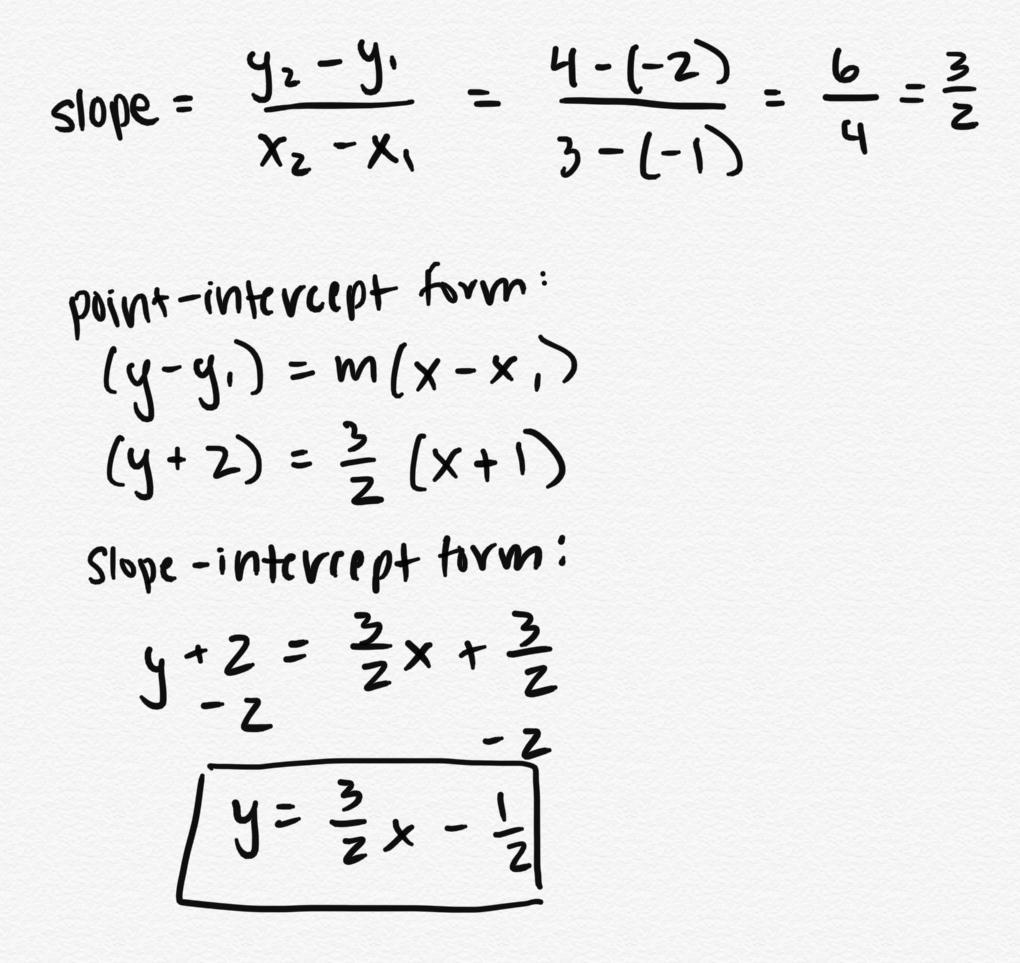 slope = (y₂ - y₁)/(x₂ - x₁) = (4 - (-2))/(3 - (-1)) = 6/4 = 3/2
point-intercept form:
(y - y₁) = m(x - x₁)
(y + 2) = 3/2 (x + 1)
slope-intercept form:
y + 2 = 3/2 x + 3/2
- 2 - 2
y = 3/2 x - 1/2